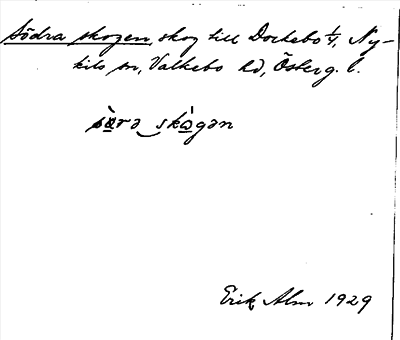 Södra skogen, skog till Dockebo 1/4, Ny-
kils sn, Valkebo hd, Österg. l.
sòrə skògən
Erik Alm 1929